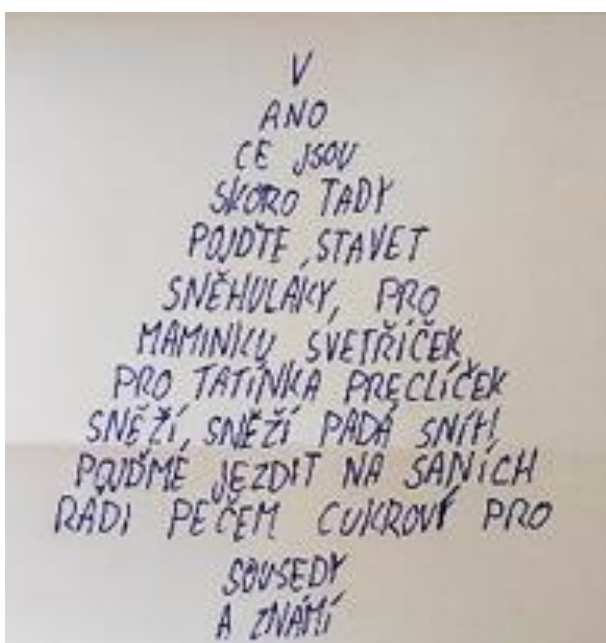 V
ANO
CE JSOU
SKORO TADY
POJĎTE STAVĚT
SNĚHULÁKY, PRO
MAMINKU SVETŘÍČEK
PRO TATÍNKA PRECLÍČEK
SNĚŽÍ, SNĚŽÍ PADÁ SNÍH,
POJĎME JEZDIT NA SANÍCH
RÁDI PEČEM CUKROVÝ PRO
SOUSEDY
A ZNÁMÍ